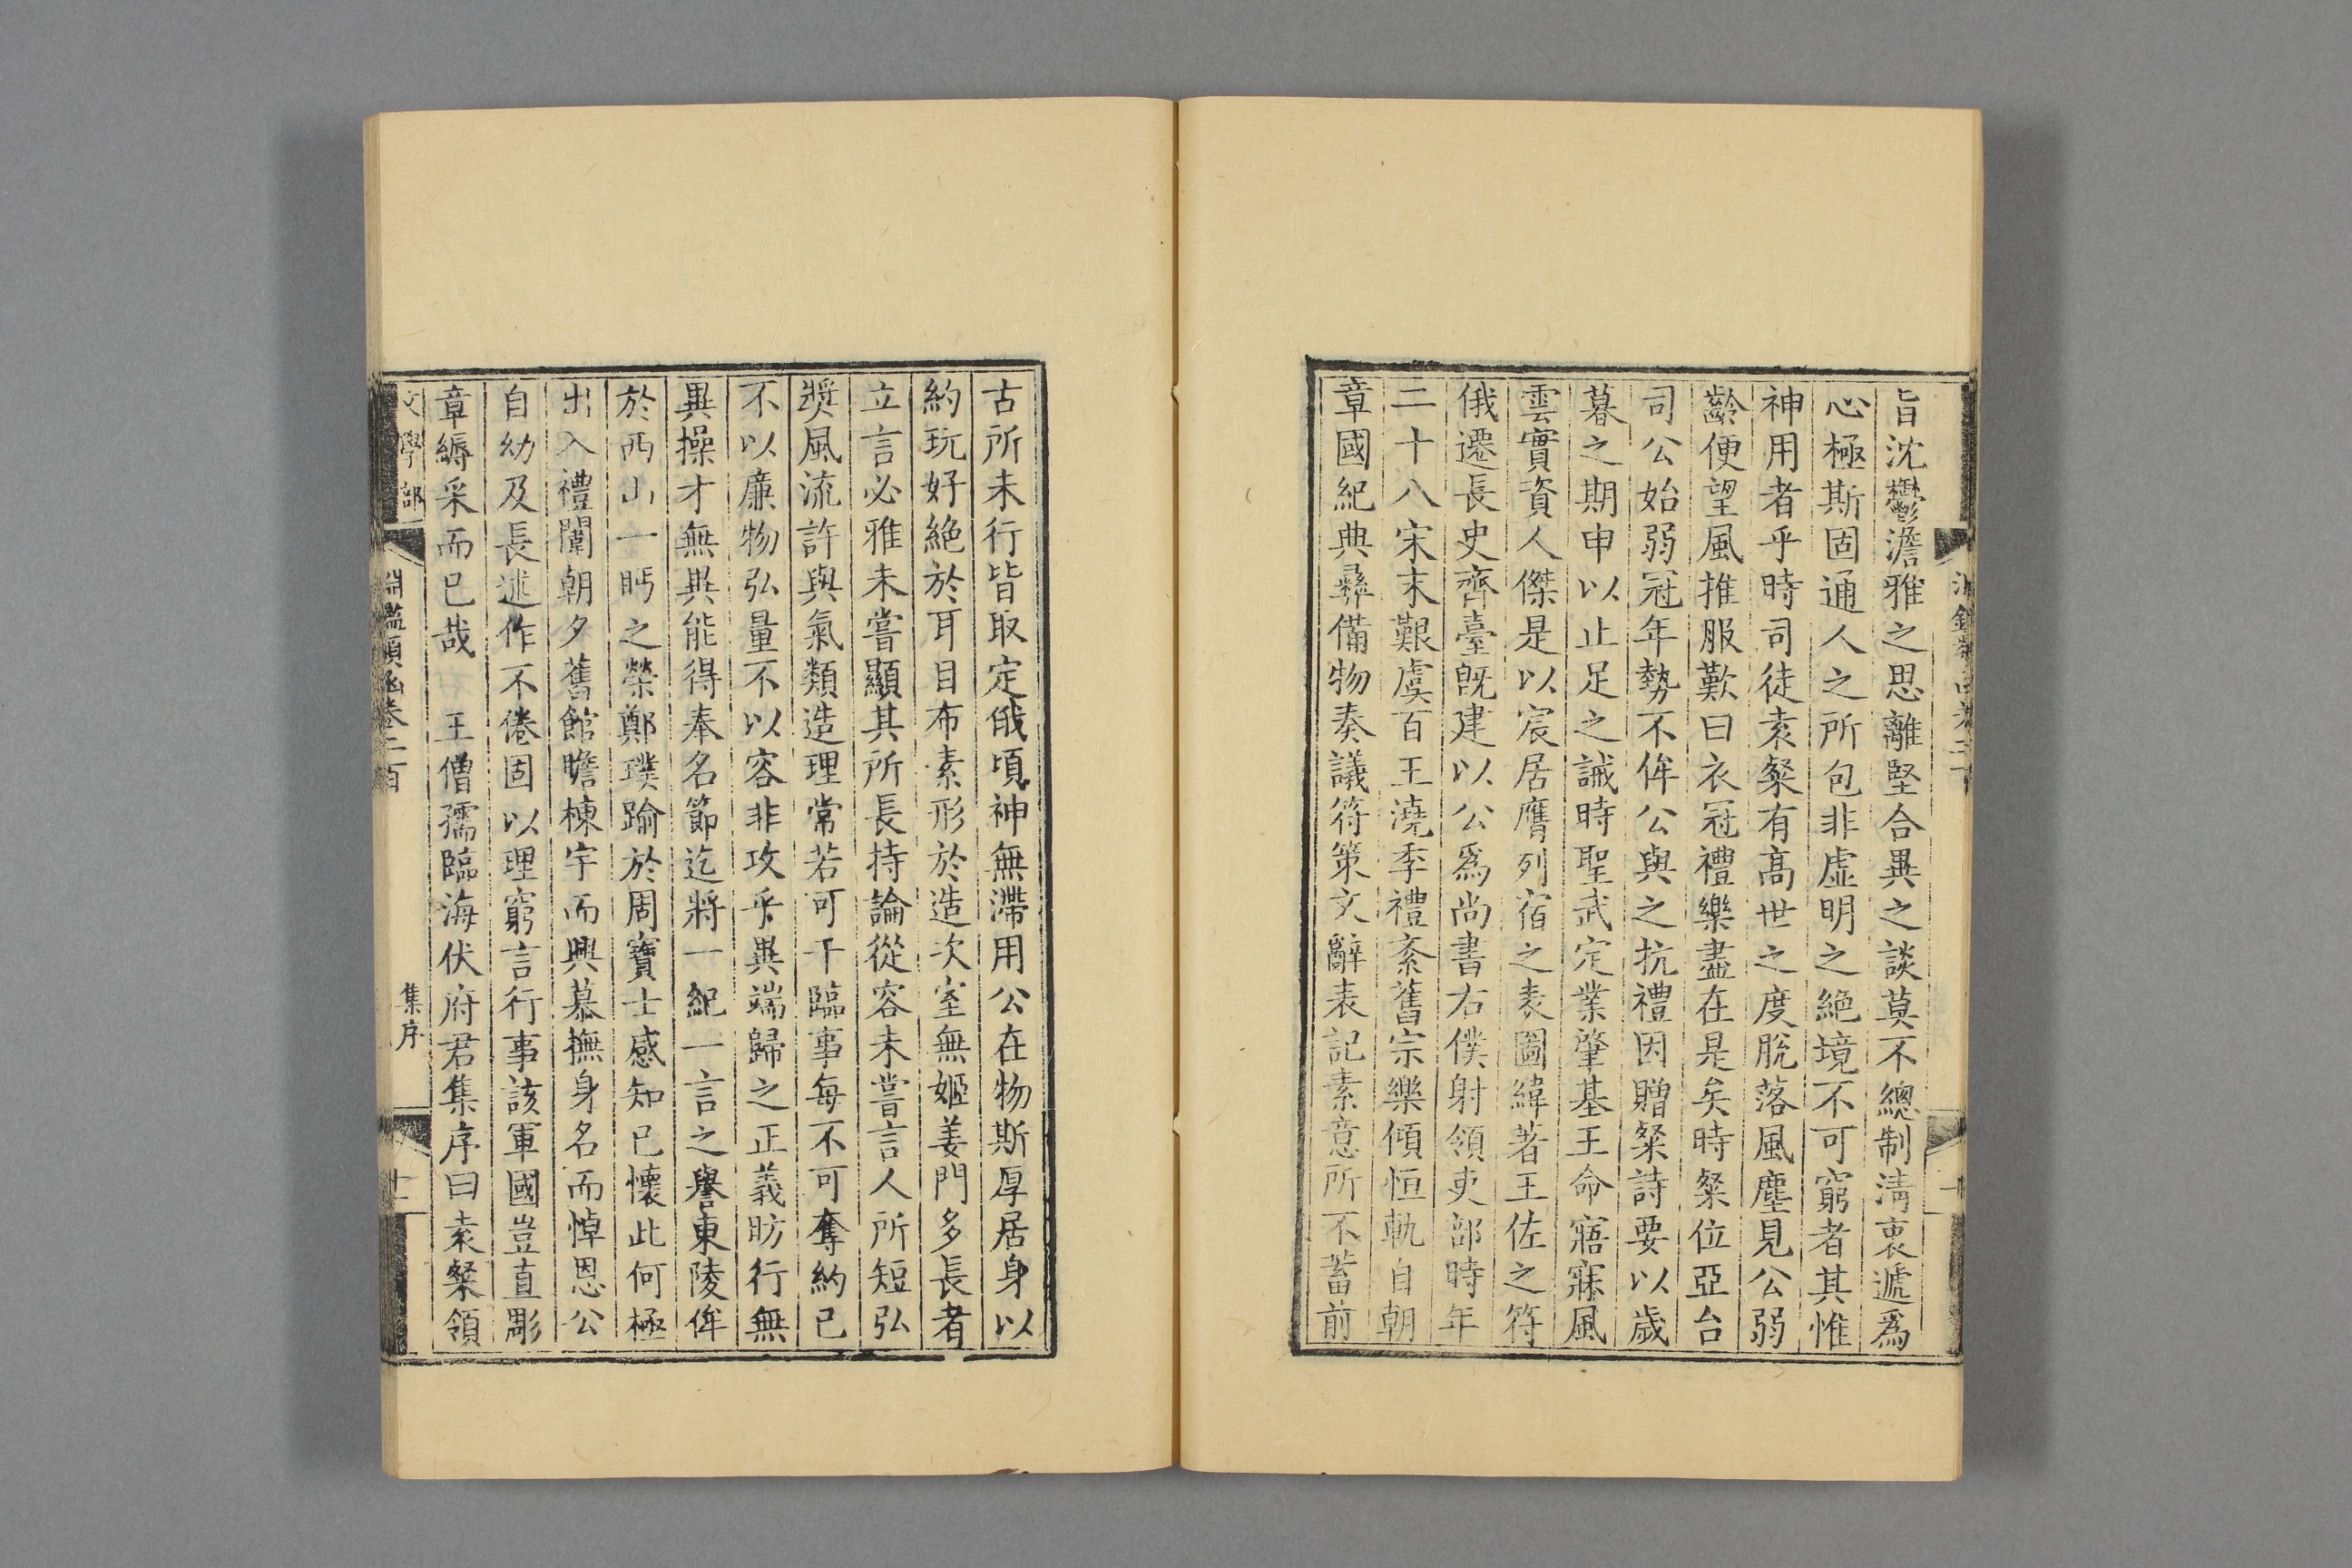 旨沈鬱澹雅之思離堅合異之談莫不總制淸衷遞爲
心極斯固通人之所包非虛明之絶境不可窮者其惟
神用者乎時司徒袁粲有高世之度脫落風塵見公弱
齡便望風推服歎曰衣冠禮樂盡在是矣時粲位亞台
司公始弱冠年勢不侔公與之抗禮因贈粲詩要以歲
暮之期申以止足之誡時聖武定業肇基王命寤寐風
雲實資人傑是以宸居膺列宿之表圖緯著王佐之符
俄遷長史齊臺旣建以公爲尚書右僕射領吏部時年
二十八宋末艱虞百王澆季禮紊舊宗樂傾恒軌自朝
章國紀典彝備物奏議符策文辭表記素意所不蓄前
古所未行皆取定俄頃神無滯用公在物斯厚居身以
約玩好絶於耳目布素形於造次室無姬姜門多長者
立言必雅未嘗顯其所長持論從容未嘗言人所短弘
奬風流許與氣類造理常若可干臨事每不可奪約己
不以廉物弘量不以容非攻乎異端歸之正義昉行無
異操才無異能得奉名節迄將一紀一言之譽東陵侔
於西山一眄之榮鄭璞踰於周寶士感知己懷此何極
出入禮闈朝夕舊館瞻棟宇而興慕撫身名而悼恩公
自幼及長述作不倦固以理窮言行事該軍國豈直彫
章縟采而已哉　王僧孺臨海伏府君集序曰袁粲領
文學部
淵鑑類函卷二百
集序